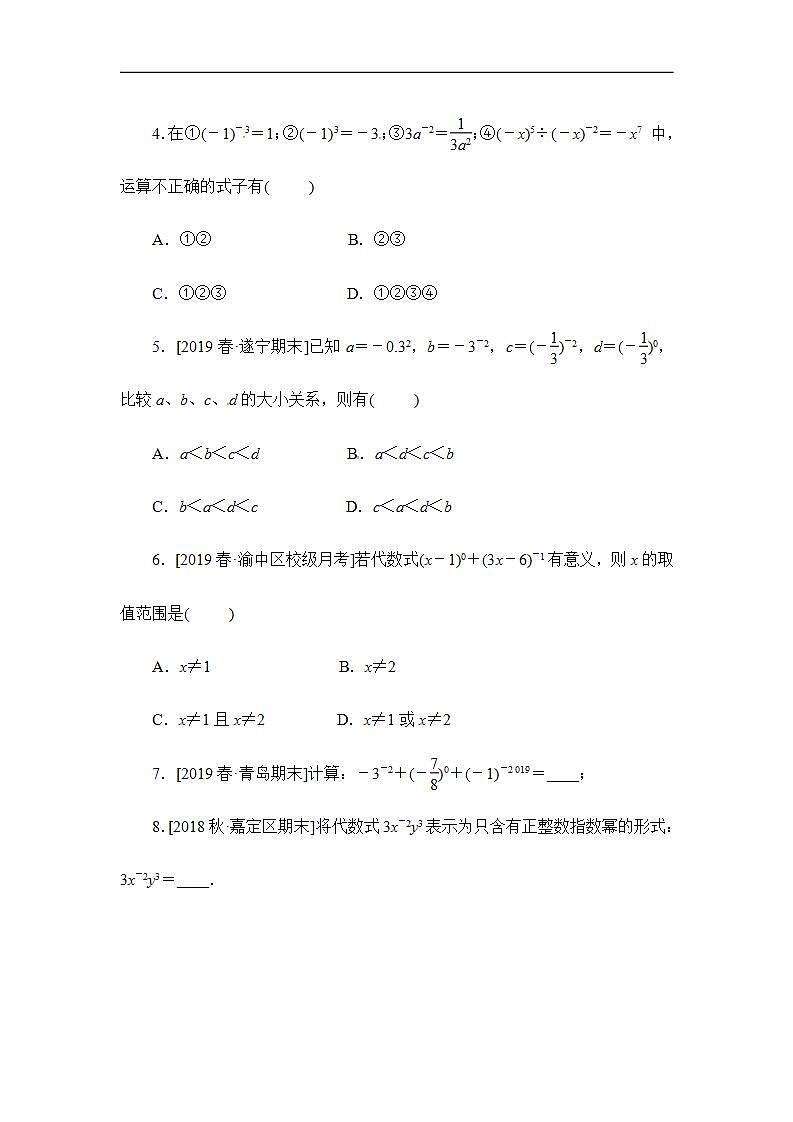 4.在①(－1)⁻³＝1;②(－1)³＝－3;③3a⁻²＝1/3a²;④(－x)⁵÷(－x)⁻²＝－x⁷ 中，
运算不正确的式子有(　　)
A．①②　　B．②③
C．①②③　　D．①②③④
5．[2019春·遂宁期末]已知a＝－0.3²，b＝－3⁻²，c＝(－1/3)⁻²，d＝(－1/3)⁰，
比较a、b、c、d的大小关系，则有(　　)
A．a＜b＜c＜d　　B．a＜d＜c＜b
C．b＜a＜d＜c　　D．c＜a＜d＜b
6．[2019春·渝中区校级月考]若代数式(x－1)⁰＋(3x－6)⁻¹有意义，则x的取
值范围是(　　)
A．x≠1　　B．x≠2
C．x≠1且x≠2　　D．x≠1或x≠2
7．[2019春·青岛期末]计算：－3⁻²＋(－7/8)⁰＋(－1)⁻²⁰¹⁹＝____；
8.[2018秋·嘉定区期末]将代数式3x⁻²y³表示为只含有正整数指数幂的形式：
3x⁻²y³＝____．